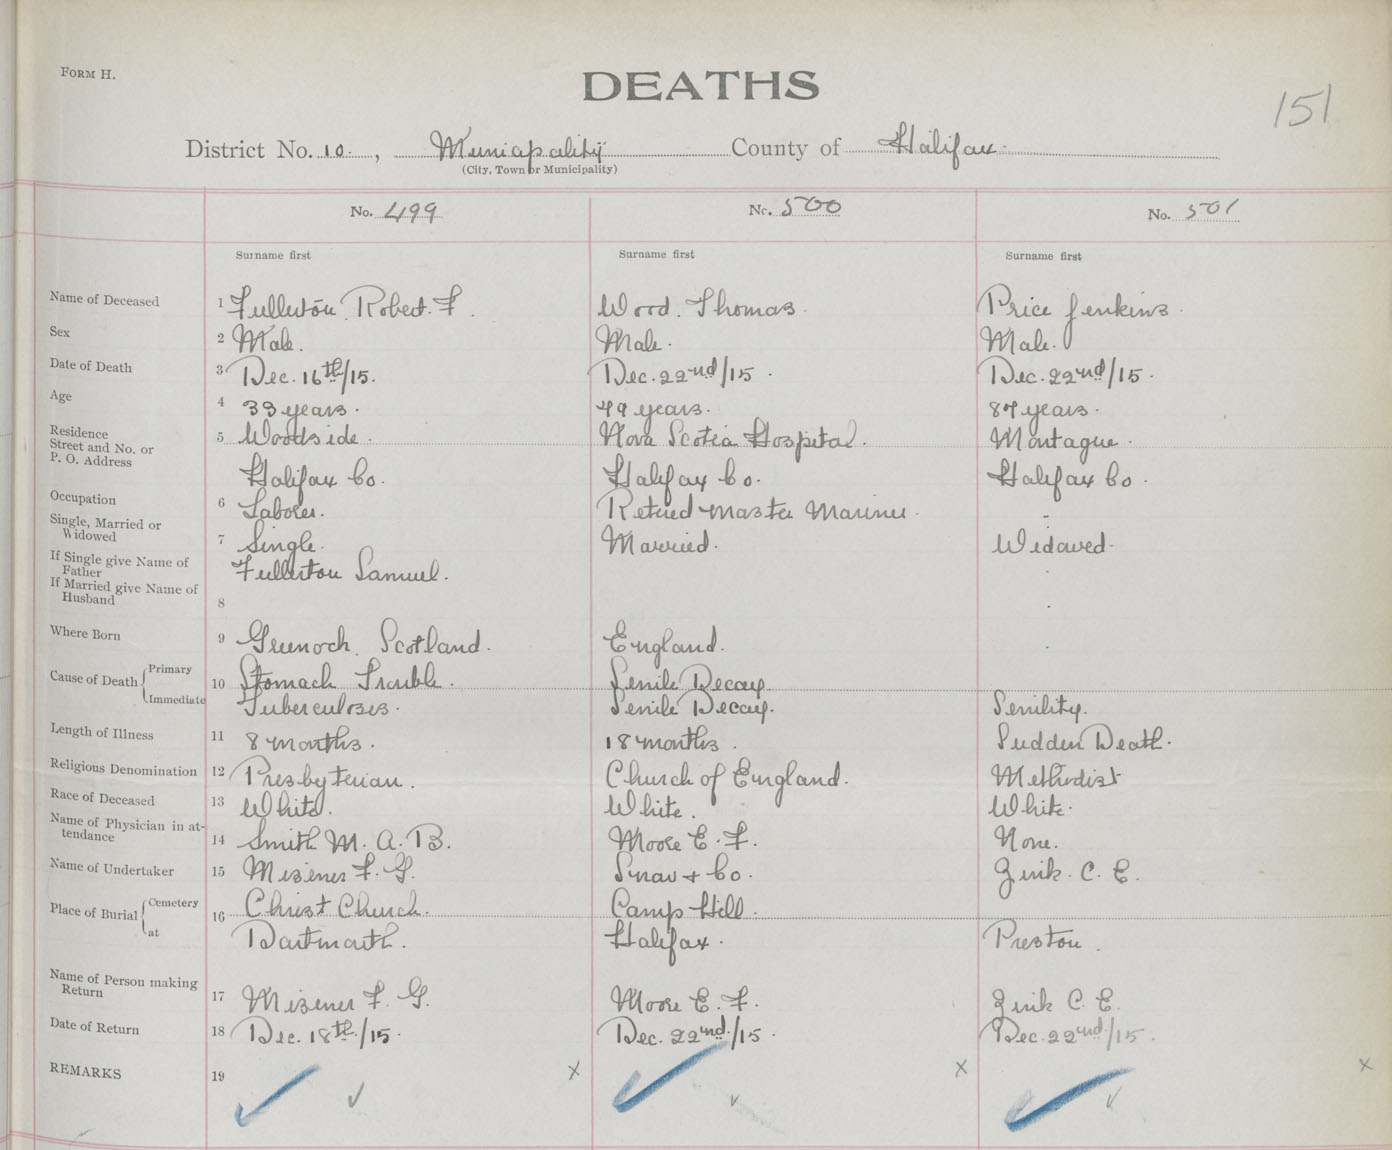 FORM H.
DEATHS
151
District No. 10, Municipality County of Halifax
(City, Town or Municipality)
No. 499 No. 500 No. 501
Surname first Surname first Surname first
Name of Deceased 1 Fullerton Robert F. Wood. Thomas. Price Jenkins.
Sex 2 Male. Male. Male.
Date of Death 3 Dec. 16th/15. Dec. 22nd/15. Dec. 22nd/15.
Age 4 33 years. 49 years. 87 years.
Residence
Street and No. or 5 Woodside. Nova Scotia Hospital. Montague.
P. O. Address
Halifax Co. Halifax Co. Halifax Co.
Occupation 6 Laborer. Retired Master Mariner.
Single, Married or
Widowed 7 Single. Married. Widowed.
If Single give Name of
Father Fullerton Samuel.
If Married give Name of
Husband 8
Where Born 9 Greenock. Scotland. England.
Cause of Death Primary 10 Stomach Trouble. Senile Decay
Immediate Tuberculosis. Senile Decay. Senility.
Length of Illness 11 8 months. 18 months. Sudden Death.
Religious Denomination 12 Presbyterian. Church of England. Methodist
Race of Deceased 13 White. White. White.
Name of Physician in at-
tendance 14 Smith M. A. B. Moore E. F. None.
Name of Undertaker 15 Misener F. G. Snow & Co. Zink. C. E.
Place of Burial Cemetery 16 Christ Church. Camp Hill.
at Dartmouth. Halifax. Preston.
Name of Person making
Return 17 Misener F. G. Moore E. F. Zink C. E.
Date of Return 18 Dec. 18th/15. Dec. 22nd/15. Dec. 22nd/15.
REMARKS 19 x x x